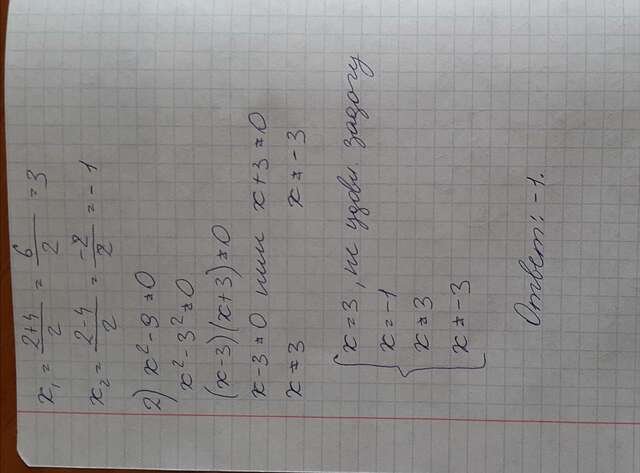 x₁ = (2+4)/2 = 6/2 = 3
x₂ = (2-4)/2 = -2/2 = -1
2) x² - 9 ≠ 0
x² - 3² ≠ 0
(x-3)(x+3) ≠ 0
x-3 ≠ 0 или x+3 ≠ 0
x ≠ 3 x ≠ -3
{ x = 3, не удовл. задачу
x = -1
x ≠ 3
x ≠ -3
Ответ: -1.